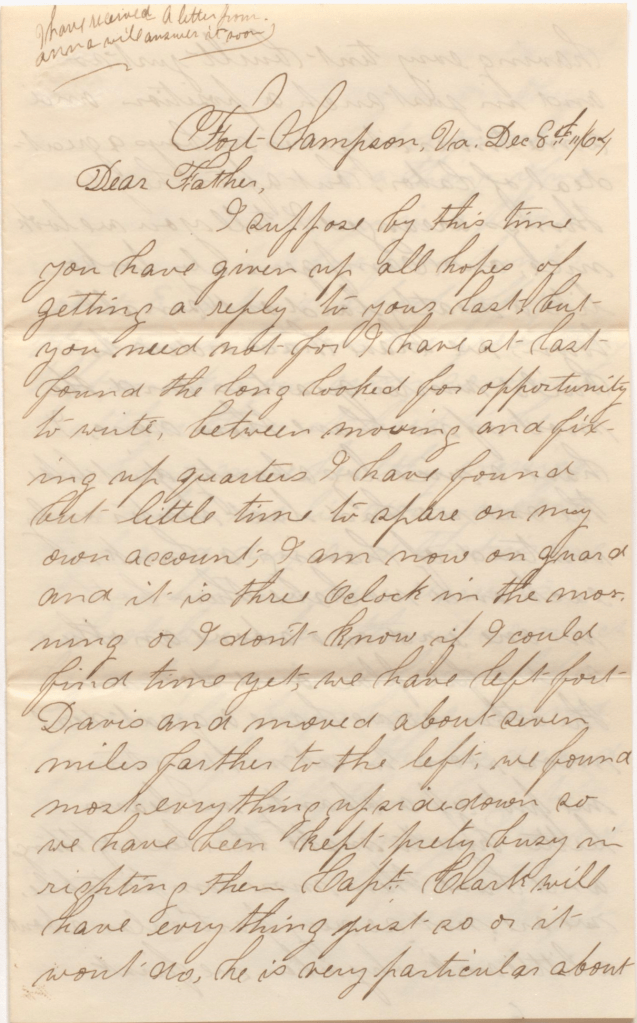 I have received a letter from
anna will answer it soon
Fort Sampson, Va. Dec 8th /64
Dear Father,
I suppose by this time
you have given up all hopes of
getting a reply to your last, but
you need not for I have at last
found the long looked for opportunity
to write, between moving and fix-
ing up quarters I have found
but little time to spare on my
own account, I am now on guard
and it is three Oclock in the mor-
ning or I don't know if I could
find time yet, we have left fort
Davis and moved about seven
miles farther to the left, we found
most evrything upsidedown so
we have been kept prety busy in
righting them Capt. Clark will
have evrything just so or it
wont do, he is very particular about